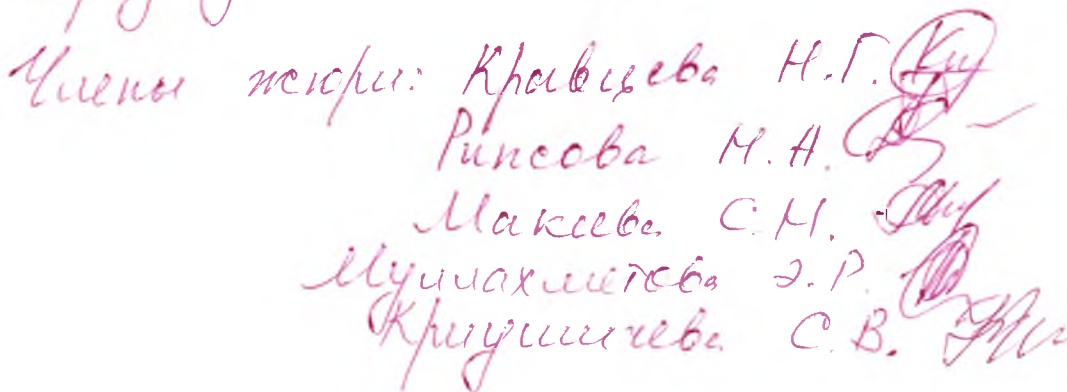 Члены жюри: Кравцева Н.Г.
Рипсова М.А.
Макиева С.М.
Муллахметова Э.Р.
С.В.